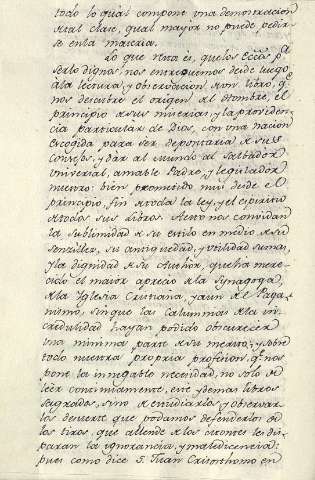 todo lo qual compone una demostracion
tal clase, qual mayor no puede pedir-
se en la materia.
Lo que resta es, que los Ecc.cos p.a
serlo dignos, nos entreguemos desde luego
a la lectura, y observacion un libro, q.e
nos descubre el origen al hombre, el
principio sus miserias, y la providen-
cia particular de Dios, con una nacion
escogida para ser depositaria su
Consejo, y dar al mundo al Salvador
universal, amable Padre, y legislador
nuestro: bien prometido mui desde el
principio, fin toda la ley, y el espiritu
todos sus libros. A esto nos convidan
la sublimidad su estilo en medio su
sencillez, su antiguedad, y utilidad suma,
y la dignidad su Author, que ha mere-
cido el maior aprecio la Synagoga,
la Yglesia Cristiana, y aun el Paga-
nismo, sin que las calumnias la in-
credulidad hayan podido obscurecer
una minima parte su merito; y sobre
todo nuestra propria profesion, q.e nos
pone la inegable necesidad, no solo
leer continuamente, este y demas libros
sagrados, sino estudiarlos, y observar-
los de suerte que podamos defenderlos los
tiros, que allende los montes les dis-
paran la ignorancia, y maledicencia:
pues como dice S. Juan Crisosthomo en